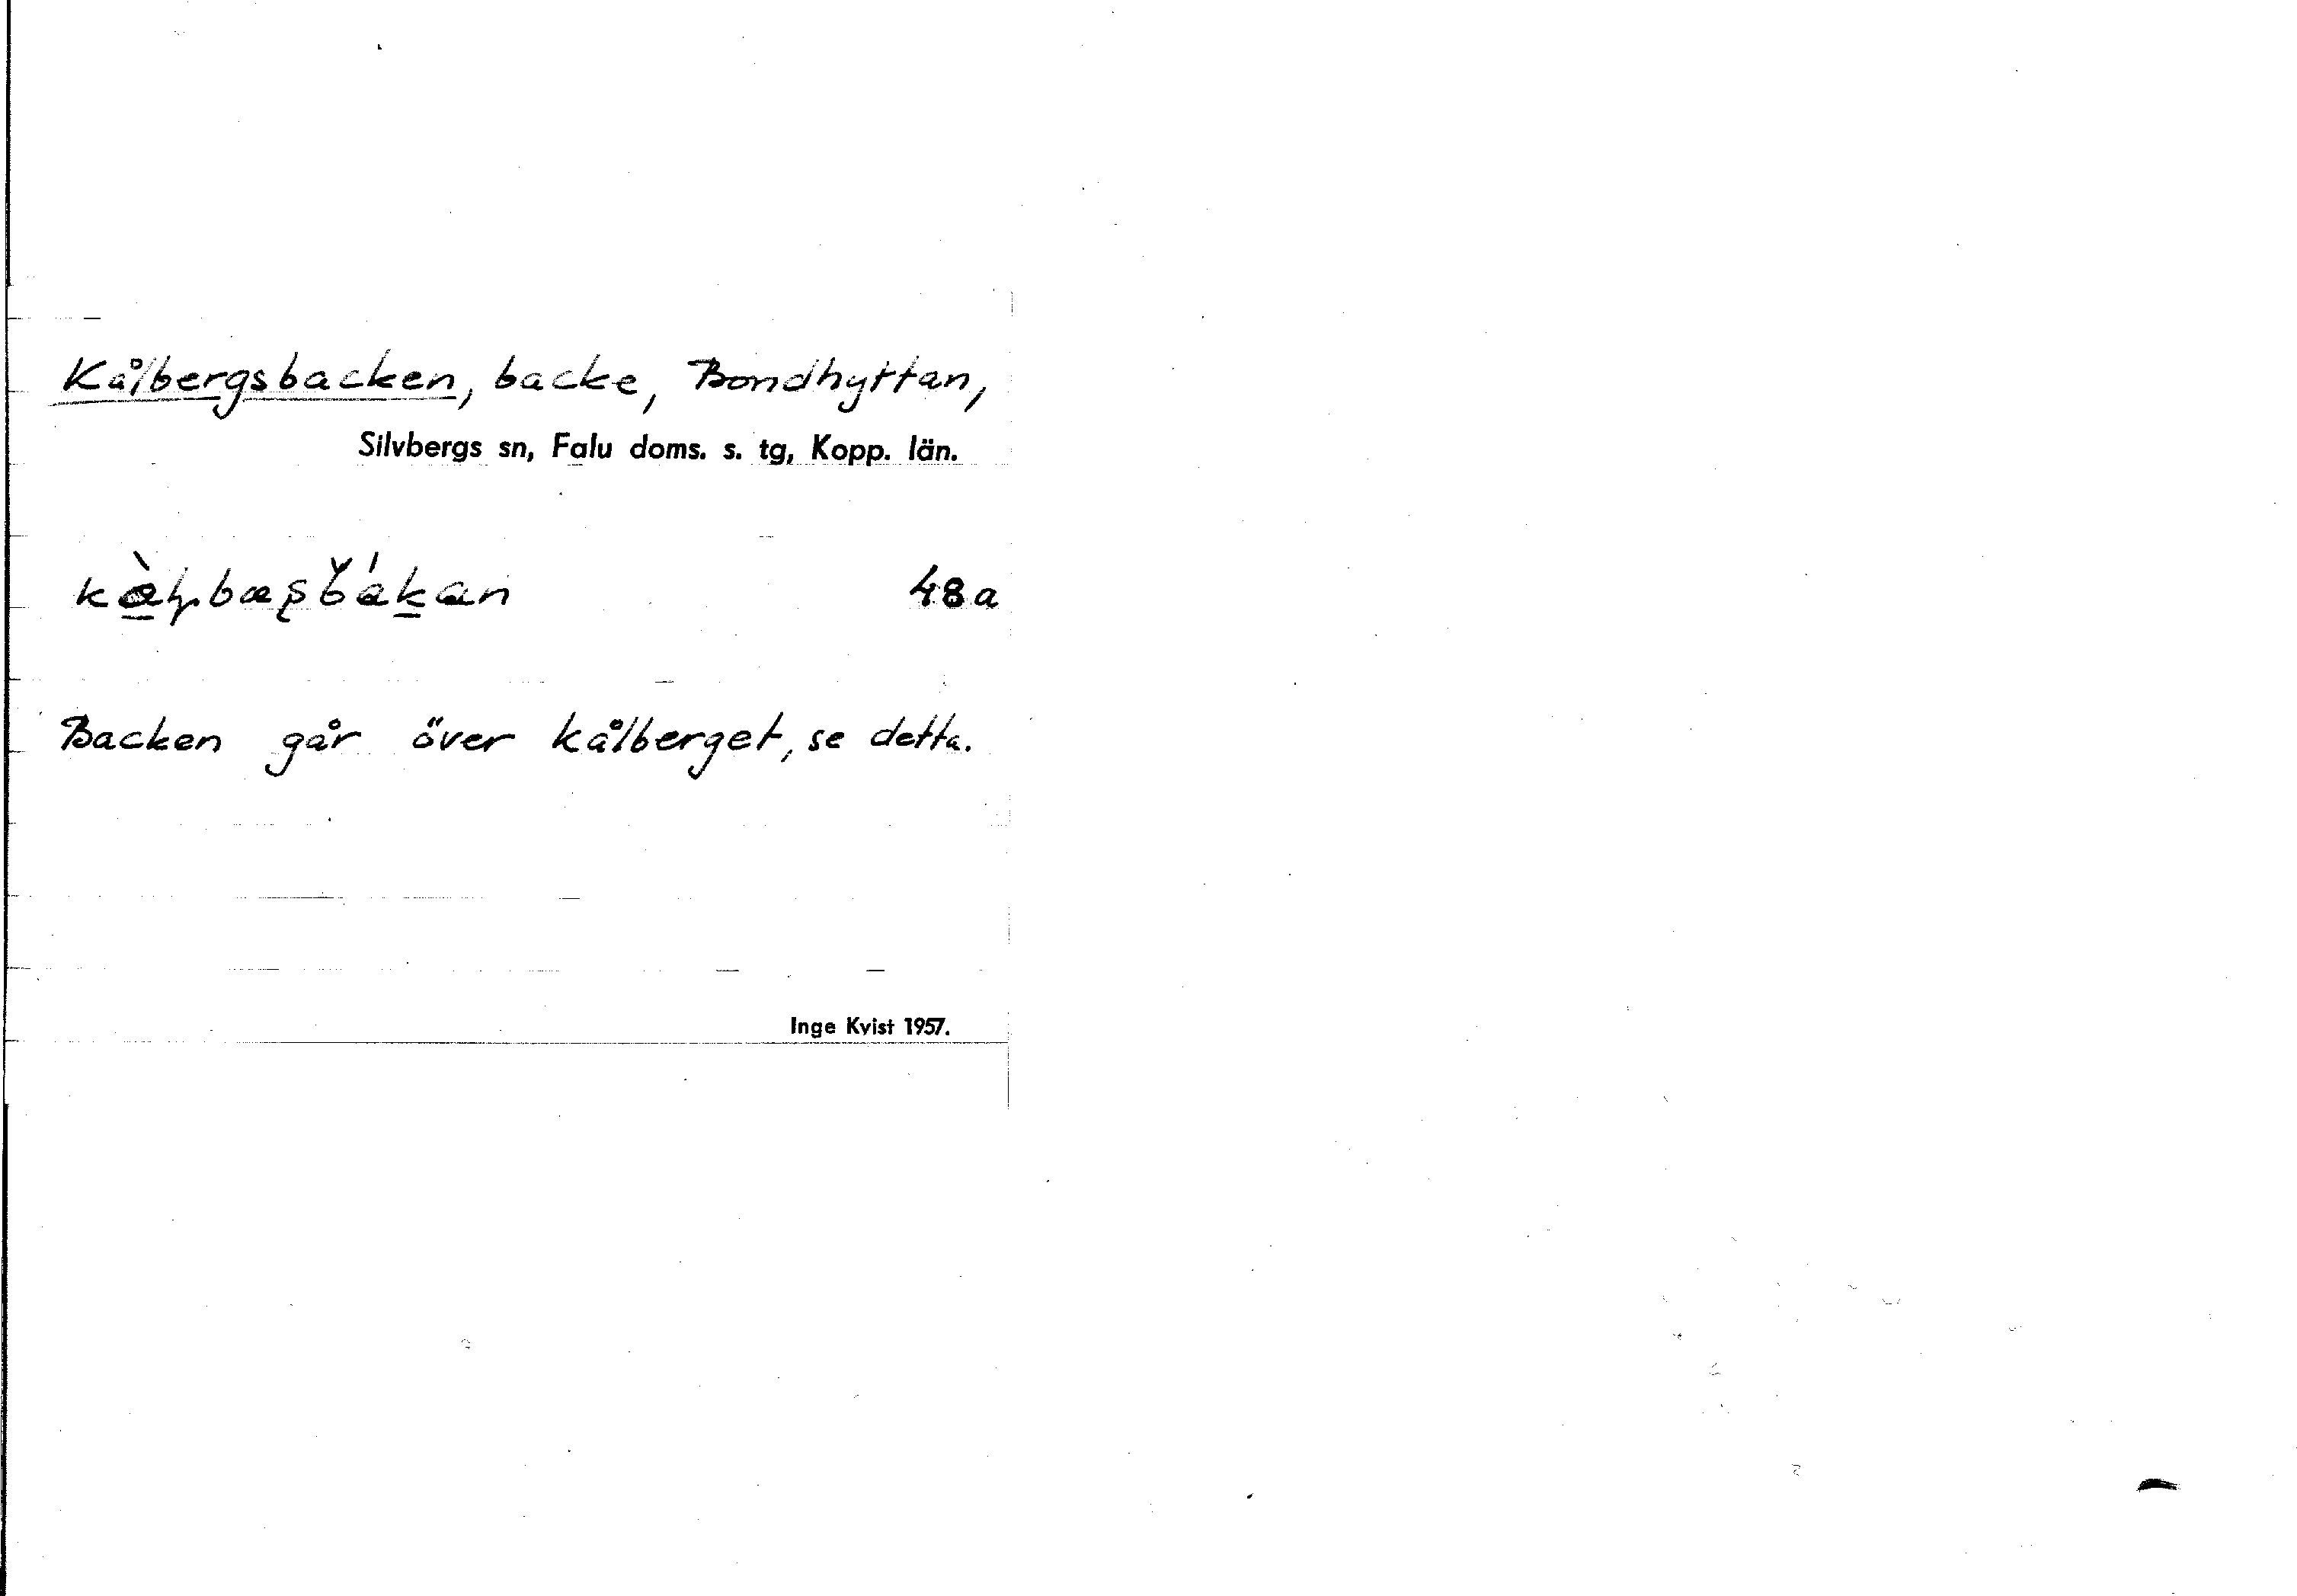 Kålbergsbacken, backe, Bondhyttan,
Silvbergs sn, Falu doms. s. tg, Kopp. län.
48a
Backen går över kålberget, se detta.
Inge Kvist 1957.